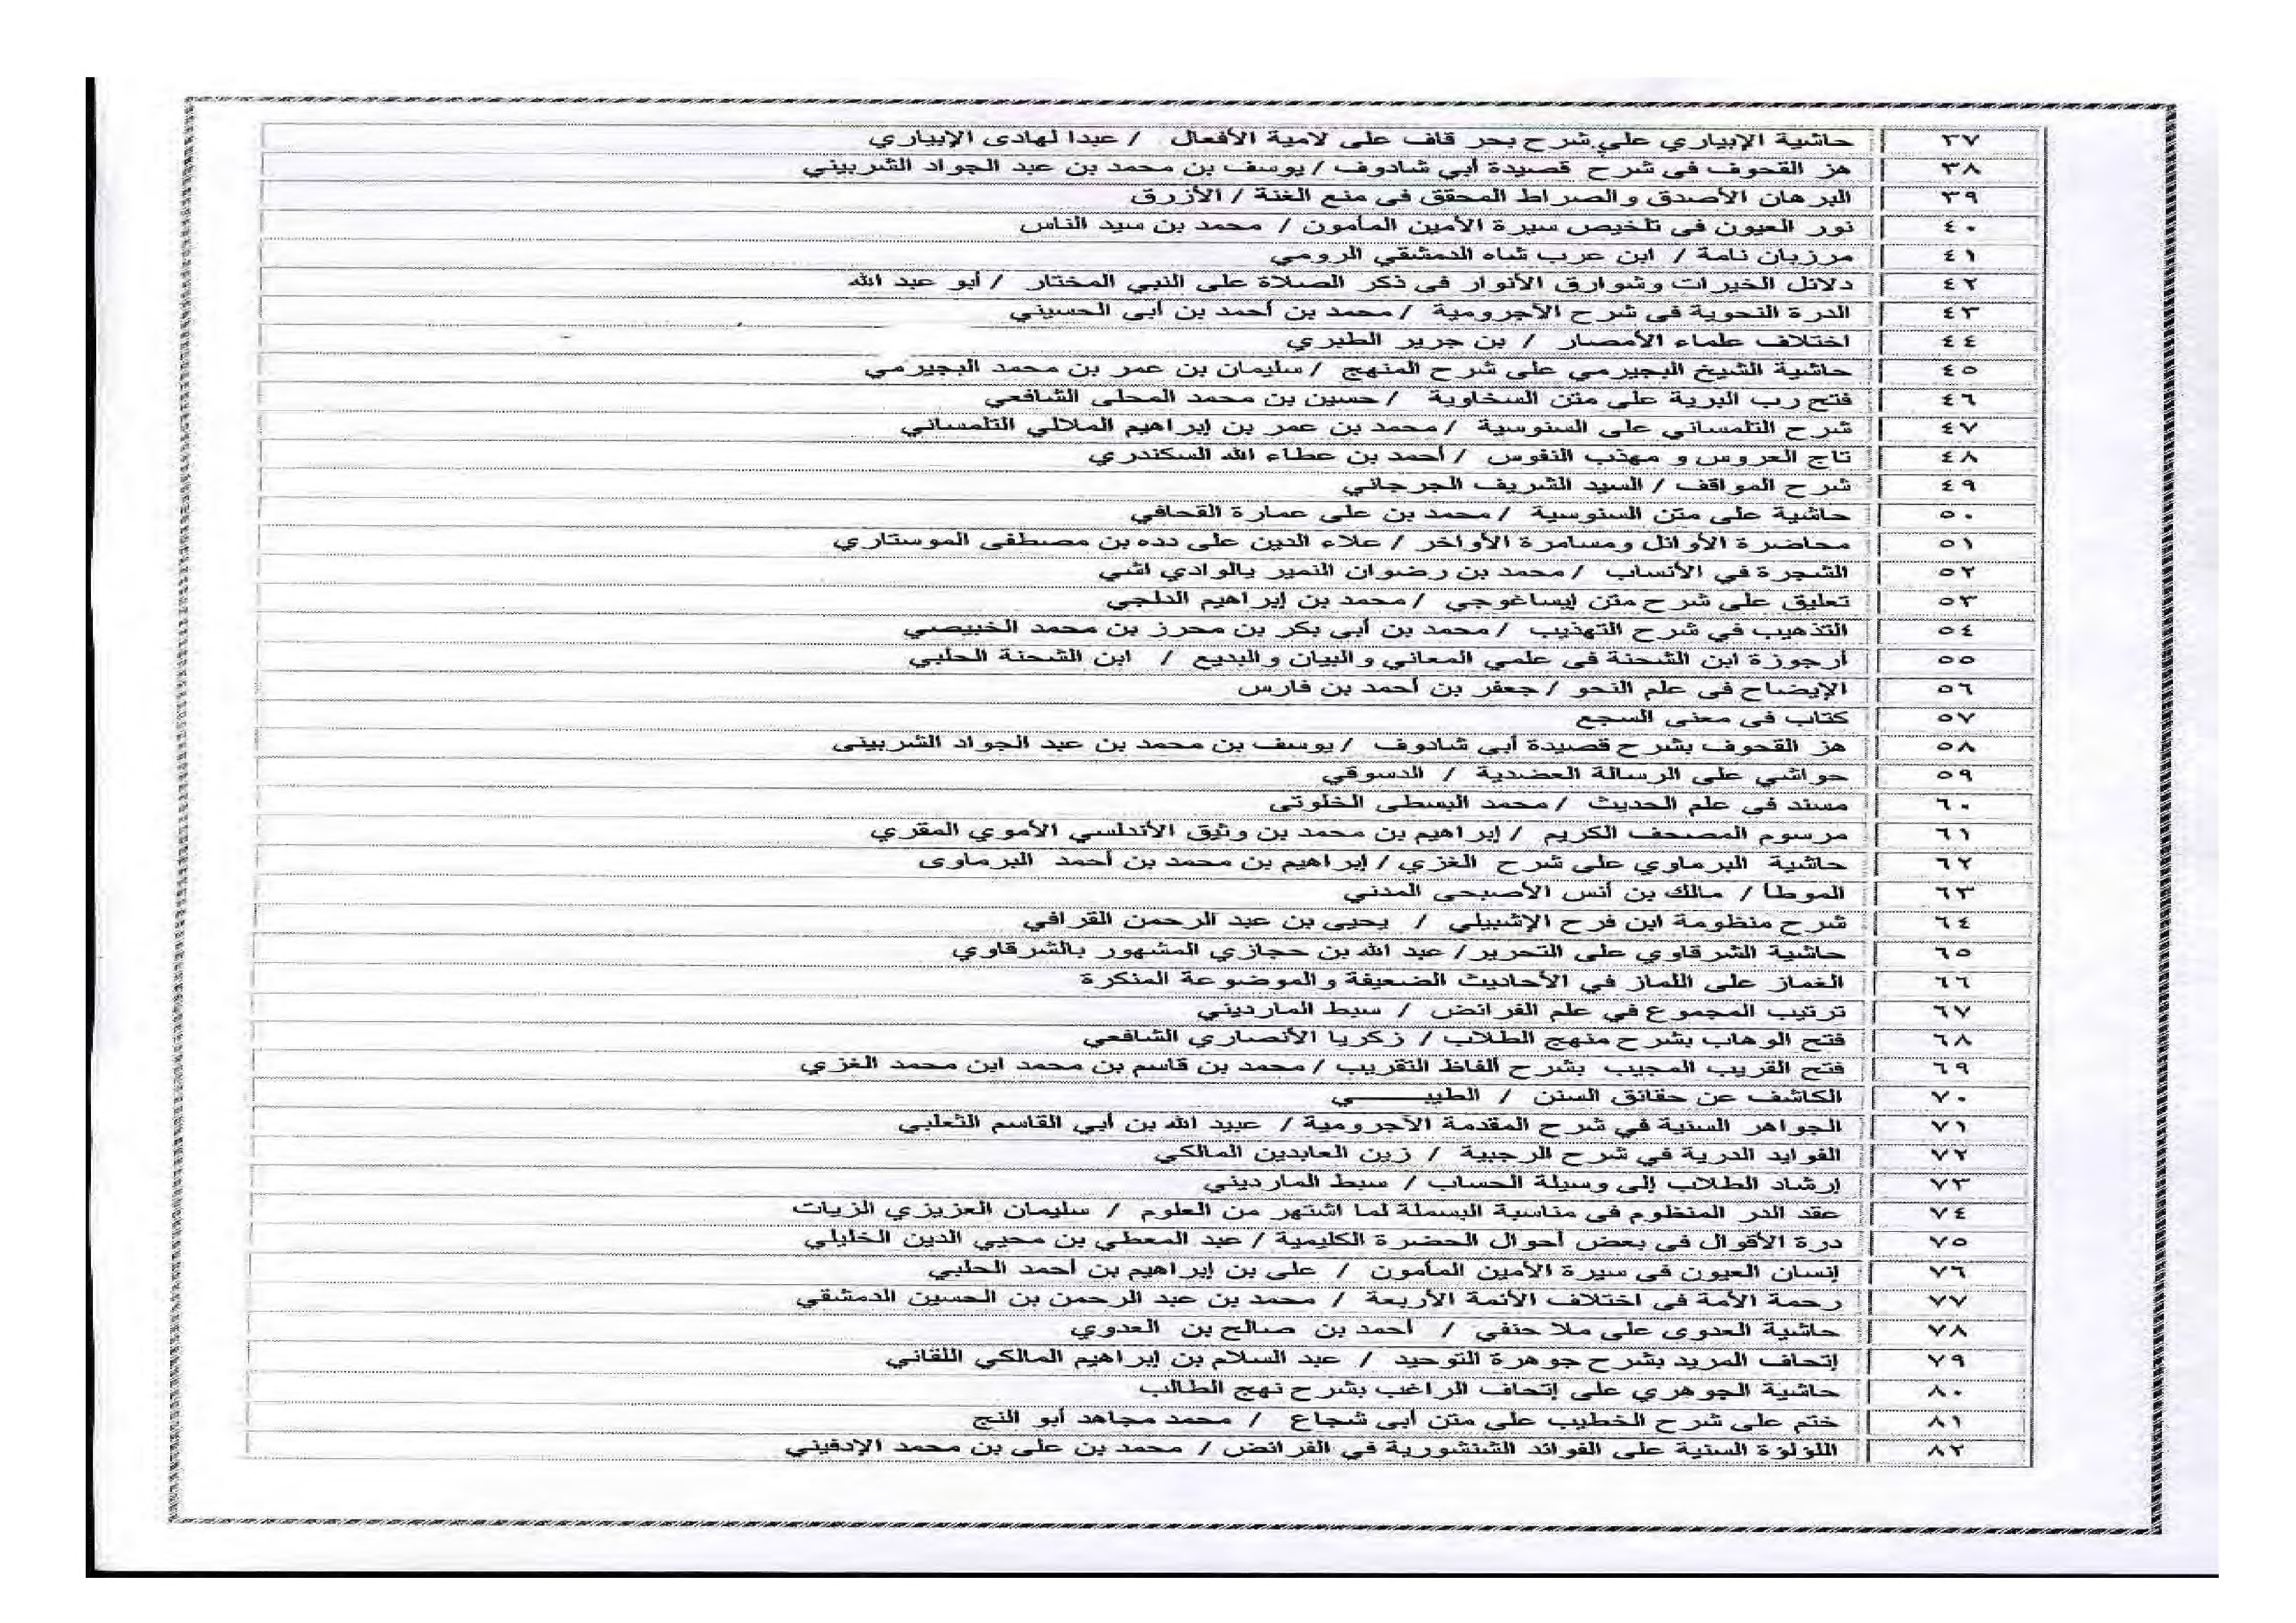 ٣٧ حاشية الإبياري علي شرح بحر قاف على لامية الأفعال / عبدا لهادى الإبياري
٣٨ هز القحوف فى شرح قصيدة أبي شادوف / يوسف بن محمد بن عبد الجواد الشربيني
٣٩ البرهان الأصدق والصراط المحقق فى منع الغنة / الأزرق
٤٠ نور العيون فى تلخيص سيرة الأمين المأمون / محمد بن سيد الناس
٤١ مرزبان نامة / ابن عرب شاه الدمشقي الرومي
٤٢ دلائل الخيرات وشوارق الأنوار فى ذكر الصلاة على النبي المختار / أبو عبد الله
٤٣ الدرة النحوية فى شرح الآجرومية / محمد بن أحمد بن أبى الحسيني
٤٤ اختلاف علماء الأمصار / بن جرير الطبري
٤٥ حاشية الشيخ البجيرمي على شرح المنهج / سليمان بن عمر بن محمد البجيرمي
٤٦ فتح رب البرية على متن السخاوية / حسين بن محمد المحلى الشافعي
٤٧ شرح التلمساني على السنوسية / محمد بن عمر بن إبراهيم الملالي التلمساني
٤٨ تاج العروس و مهذب النفوس / أحمد بن عطاء الله السكندري
٤٩ شرح المواقف / السيد الشريف الجرجاني
٥٠ حاشية على متن السنوسية / محمد بن على عمارة القحافي
٥١ محاضرة الأوائل ومسامرة الأواخر / علاء الدين على دده بن مصطفى الموستاري
٥٢ الشجرة في الأنساب / محمد بن رضوان النمير يالوادي اشي
٥٣ تعليق على شرح متن إيساغوجي / محمد بن إبراهيم الدلجي
٥٤ التذهيب في شرح التهذيب / محمد بن أبى بكر بن محرز بن محمد الخبيصي
٥٥ أرجوزة ابن الشحنة فى علمي المعاني والبيان والبديع / ابن الشحنة الحلبي
٥٦ الإيضاح فى علم النحو / جعفر بن أحمد بن فارس
٥٧ كتاب فى معنى السجع
٥٨ هز القحوف بشرح قصيدة أبي شادوف / يوسف بن محمد بن عبد الجواد الشربينى
٥٩ حواشي على الرسالة العضدية / الدسوقي
٦٠ مسند فى علم الحديث / محمد البسطى الخلوتى
٦١ مرسوم المصحف الكريم / إبراهيم بن محمد بن وثيق الأندلسي الأموي المقري
٦٢ حاشية البرماوي على شرح الغزي / إبراهيم بن محمد بن أحمد البرماوى
٦٣ الموطأ / مالك بن أنس الأصبحى المدني
٦٤ شرح منظومة ابن فرح الإشبيلي / يحيى بن عبد الرحمن القرافي
٦٥ حاشية الشرقاوي على التحرير / عبد الله بن حجازي المشهور بالشرقاوي
٦٦ الغماز على اللماز في الأحاديث الضعيفة والموضوعة المنكرة
٦٧ ترتيب المجموع في علم الفرائض / سبط المارديني
٦٨ فتح الوهاب بشرح منهج الطلاب / زكريا الأنصاري الشافعي
٦٩ فتح القريب المجيب بشرح ألفاظ التقريب / محمد بن قاسم بن محمد ابن محمد الغزي
٧٠ الكاشف عن حقائق السنن / الطيبـــــي
٧١ الجواهر السنية في شرح المقدمة الآجرومية / عبيد الله بن أبي القاسم الثعلبي
٧٢ الفوايد الدرية في شرح الرحبية / زين العابدين المالكي
٧٣ إرشاد الطلاب إلى وسيلة الحساب / سبط المارديني
٧٤ عقد الدر المنظوم فى مناسبة البسملة لما اشتهر من العلوم / سليمان العزيزي الزيات
٧٥ درة الأقوال فى بعض أحوال الحضرة الكليمية / عبد المعطي بن محيي الدين الخليلي
٧٦ إنسان العيون فى سيرة الأمين المأمون / على بن إبراهيم بن أحمد الحلبي
٧٧ رحمة الأمة فى اختلاف الأئمة الأربعة / محمد بن عبد الرحمن بن الحسين الدمشقي
٧٨ حاشية العدوى على ملا حنفي / أحمد بن صالح بن العدوي
٧٩ إتحاف المريد بشرح جوهرة التوحيد / عبد السلام بن إبراهيم المالكي اللقاني
٨٠ حاشية الجوهري على إتحاف الراغب بشرح نهج الطالب
٨١ ختم على شرح الخطيب على متن أبى شجاع / محمد مجاهد أبو النج
٨٢ اللؤلؤة السنية على الفوائد الشنشورية في الفرائض / محمد بن على بن محمد الإدفيني